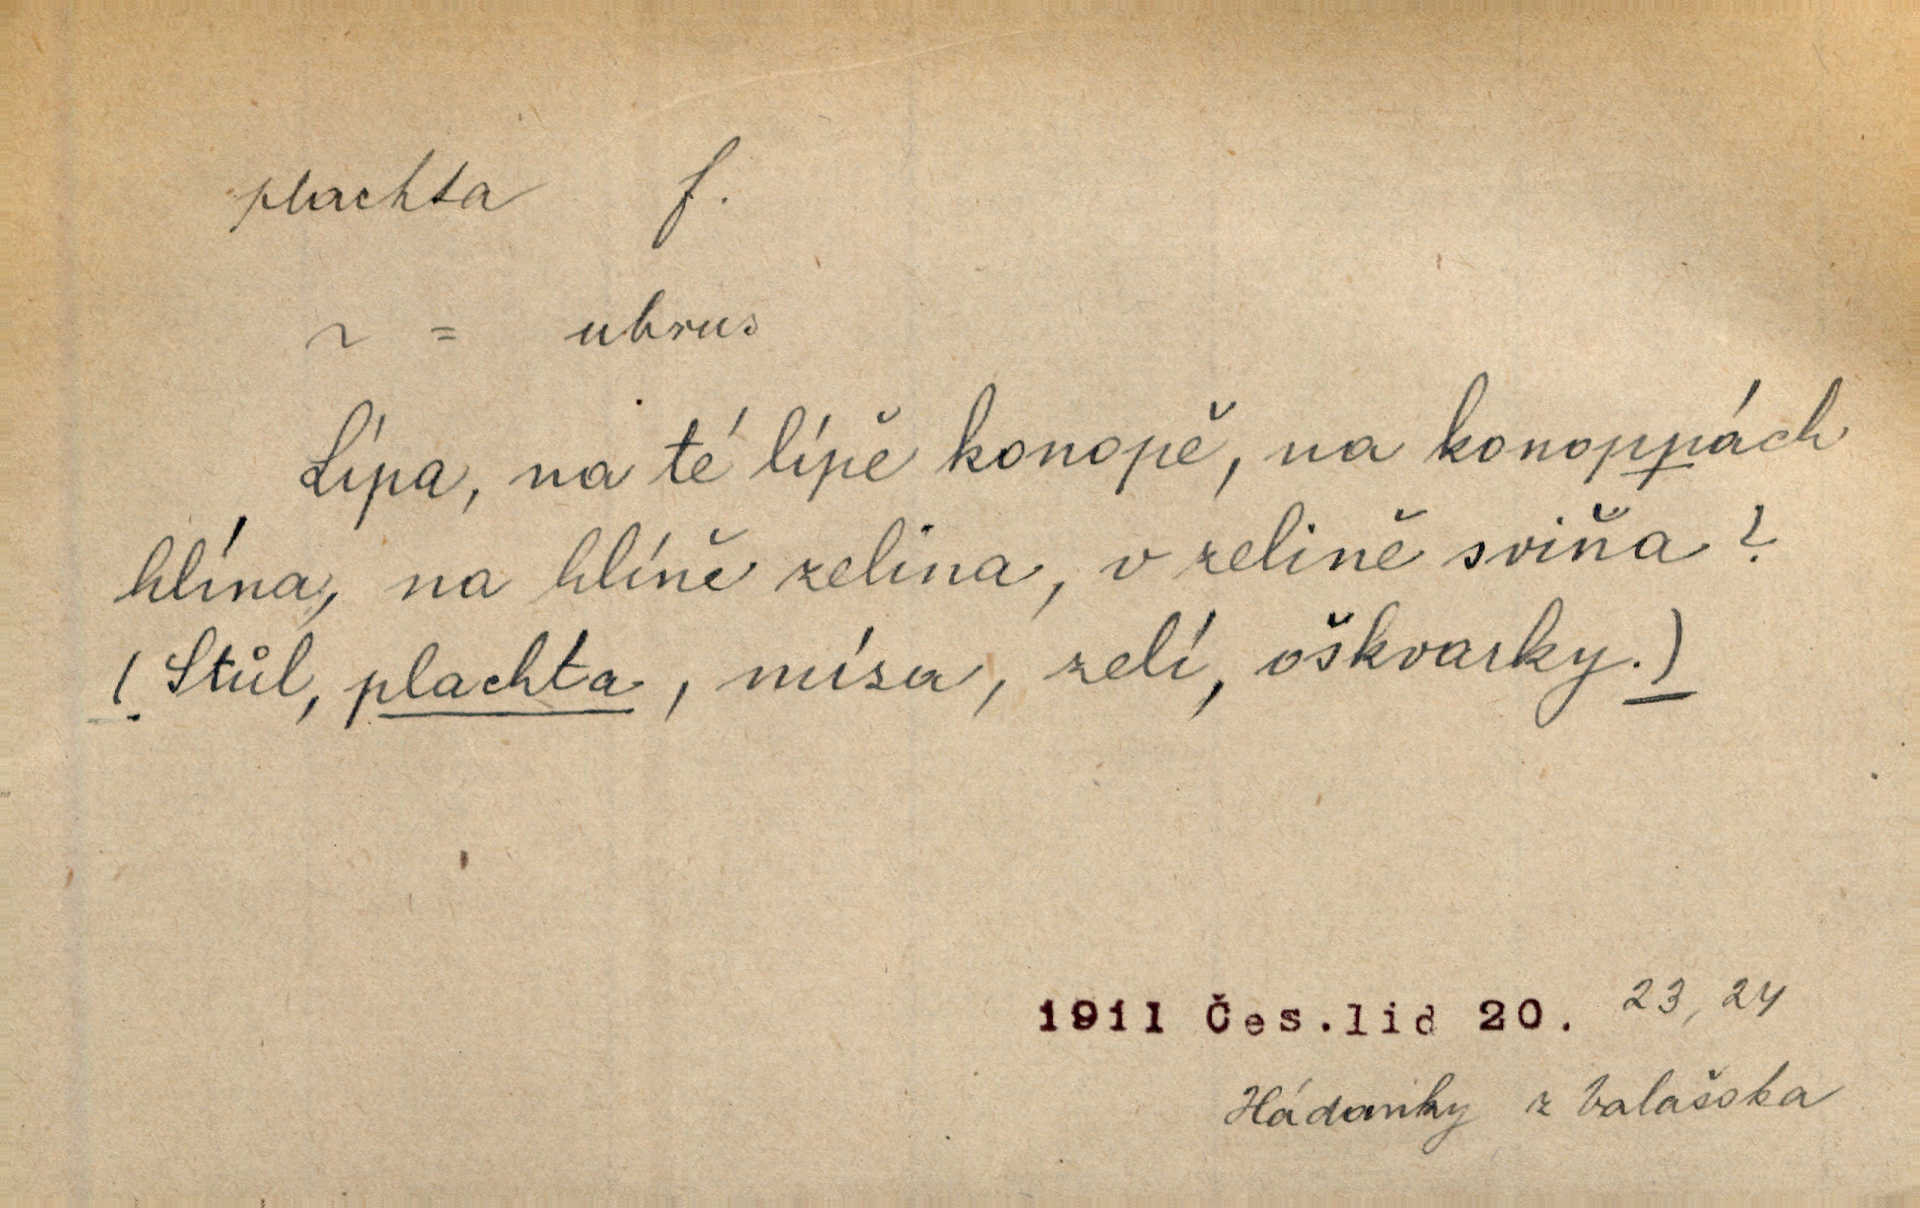 plachta f.
~ = ubrus
Lípa, na té lípě konopě, na konoppách
hlína, na hlíně zelina, v zelině sviňa?
(Stůl, plachta, mísa, zelí, oškvarky.)
1911 Čes.lid 20. 23, 24
Hádanky z Valašska